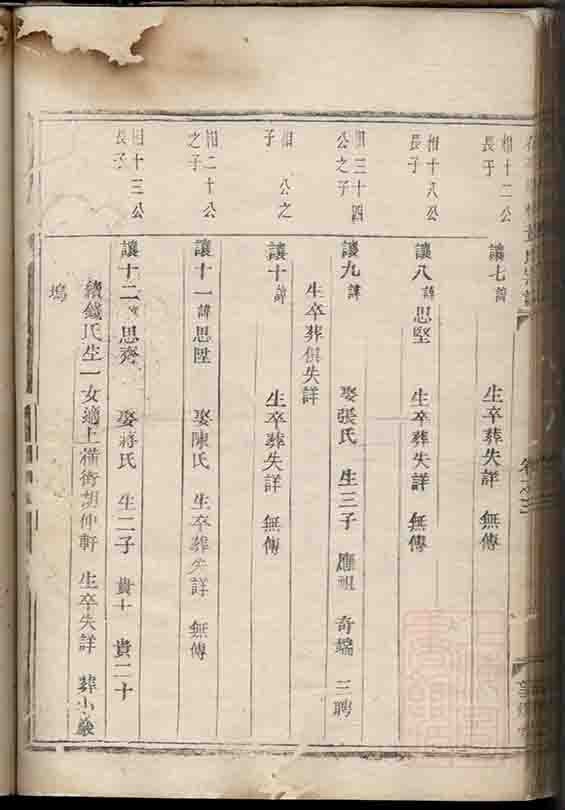 相十二公
長子
讓七 諱
生卒葬失詳 無傳
相十八公
長子
讓八 諱 思堅 生卒葬失詳 無傳
相三十四
公之子
讓九 諱 娶張氏 生三子 應祖 奇瑞 三聘
生卒葬俱失詳
相 公之
子
讓十 諱 生卒葬失詳 無傳
相二十公
之子
讓十一 諱 思陞 娶陳氏 生卒葬失詳 無傳
相十三公
長子
讓十二 諱 思齊 娶蔣氏 生二子 貴十 貴二十
續錢氏生一女適上橫街胡仲軒 生卒失詳 葬小嚴
塢